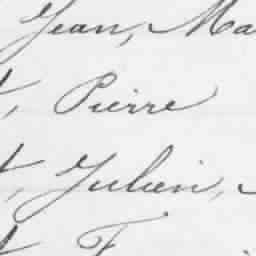 Jean, Ma
t, Pierre
t, Julien,
t